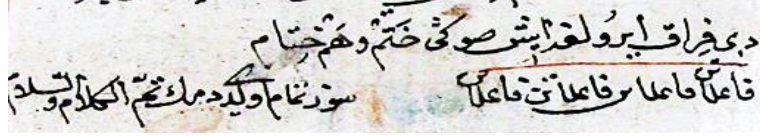 دى فراق ايرولغه ايتش صوكى ختم وهم ختام
فاعلاتن فاعلاتن فاعلاتن فاعلات سوز تمام اولدى ديمك تم الكلام والسلام